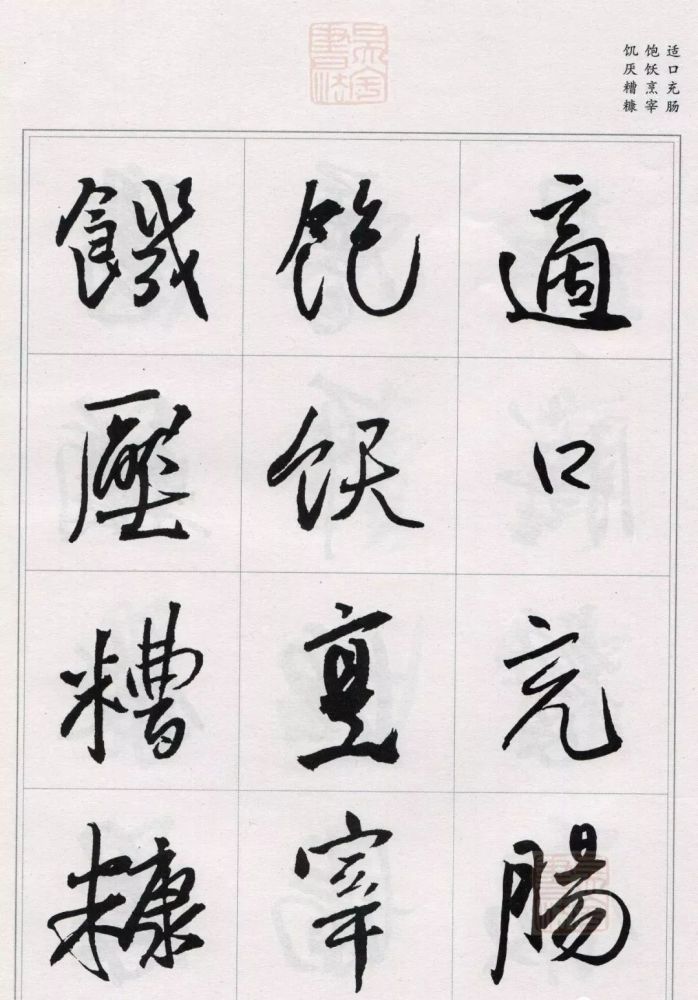 适口充肠
饱饫烹宰
饥厌糟糠
適口充腸
飽飫烹宰
饑壓糟糠